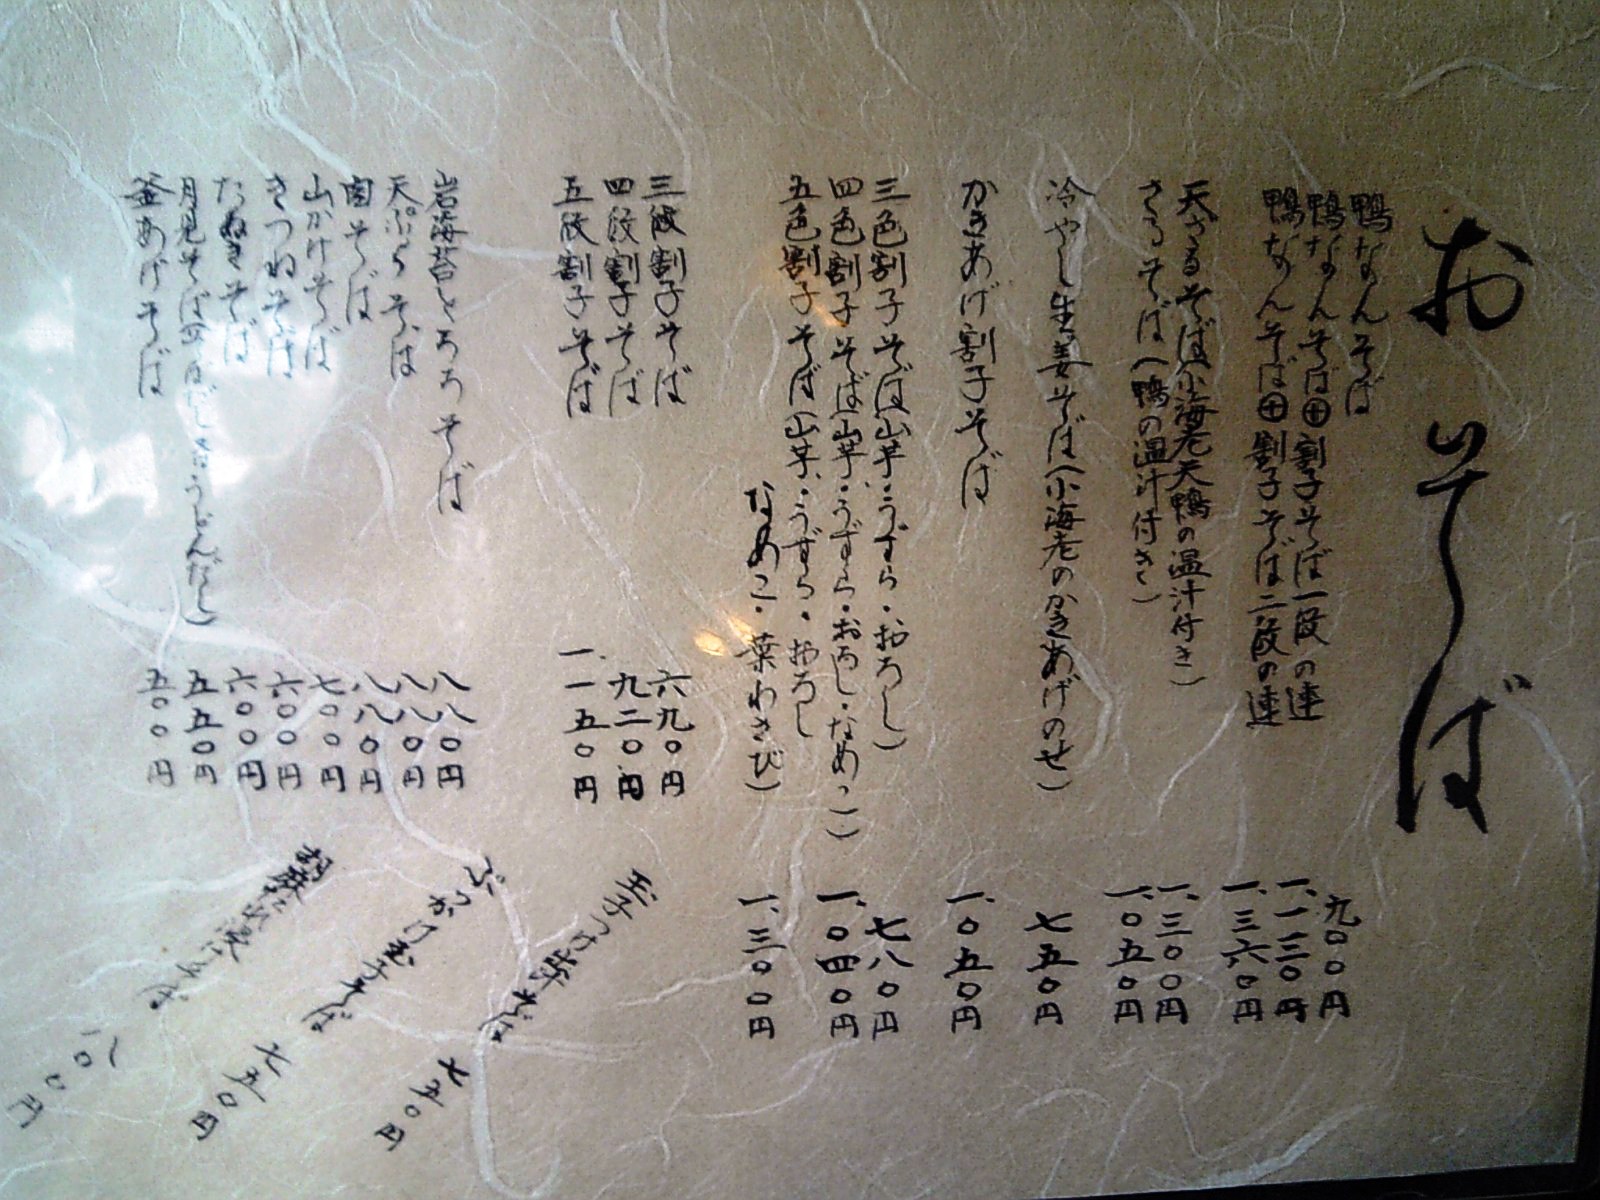 おそば
鴨なんそば 九〇〇円
鴨なんそば⊕割子そば一段の連 一、一三〇円
鴨なんそば⊕割子そば二段の連 一、三六〇円
天ざるそば(小海老天鴨の温汁付き) 一、三〇〇円
ざるそば(鴨の温汁付き) 一、〇五〇円
冷やし生姜そば(小海老のかきあげのせ) 七五〇円
かきあげ割子そば 一、〇五〇円
三色割子そば(山芋・うずら・おろし) 七八〇円
四色割子そば(山芋・うずら・おろし・なめこ) 一、〇四〇円
五色割子そば(山芋・うずら・おろし
なめこ・葉わさび) 一、三〇〇円
三段割子そば 六九〇円
四段割子そば 九二〇円
五段割子そば 一、一五〇円
岩海苔とろろそば 八八〇円
天ぷらそば 八八〇円
肉そば 八八〇円
山かけそば 七〇〇円
きつねそば 六〇〇円
たぬきそば 六〇〇円
月見そば うどんだし) 五五〇円
釜あげそば 五〇〇円
玉子つけ そば 七五〇円
ぶっかけ玉子そば 七五〇円
胡麻だれ そば 八〇〇円